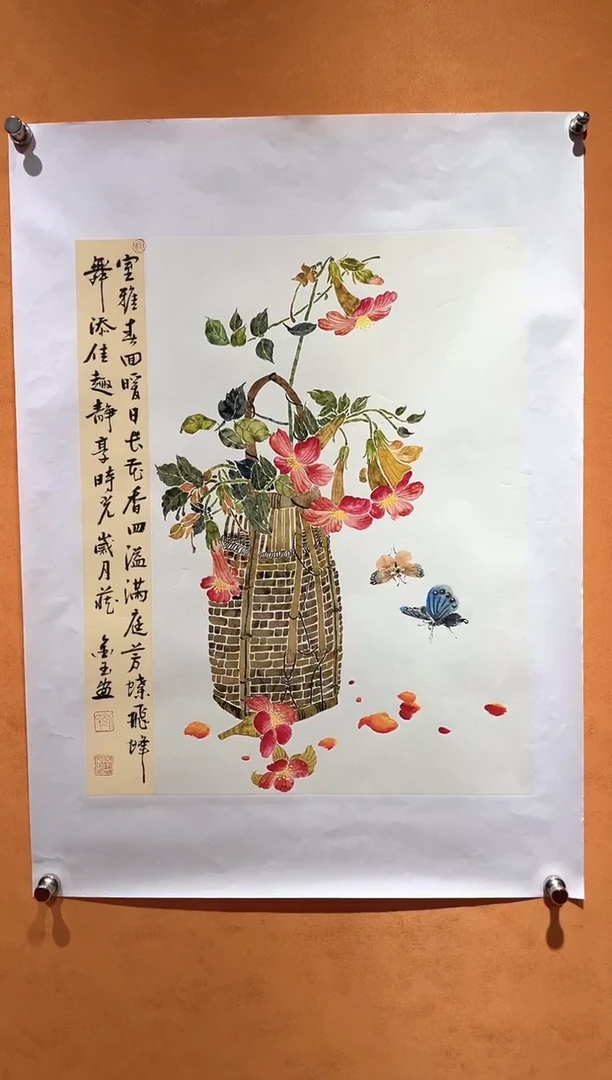 室雅春回暖日长花香四溢满庭芳蝶飛蜂
舞添佳趣静享時光歲月藏
金玉